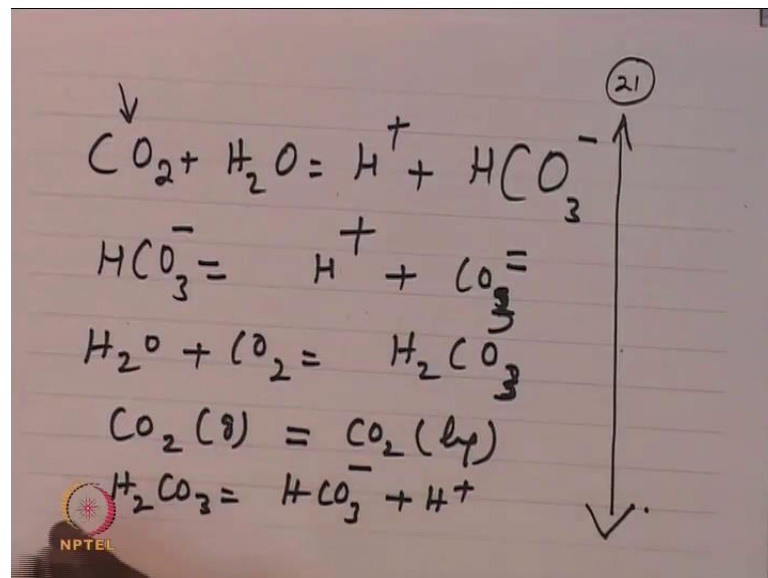 21
CO₂ + H₂O = H⁺ + HCO₃⁻
HCO₃⁻ = H⁺ + CO₃⁼
H₂O + CO₂ = H₂CO₃
CO₂ (g) = CO₂ (liq)
H₂CO₃ = HCO₃⁻ + H⁺
NPTEL